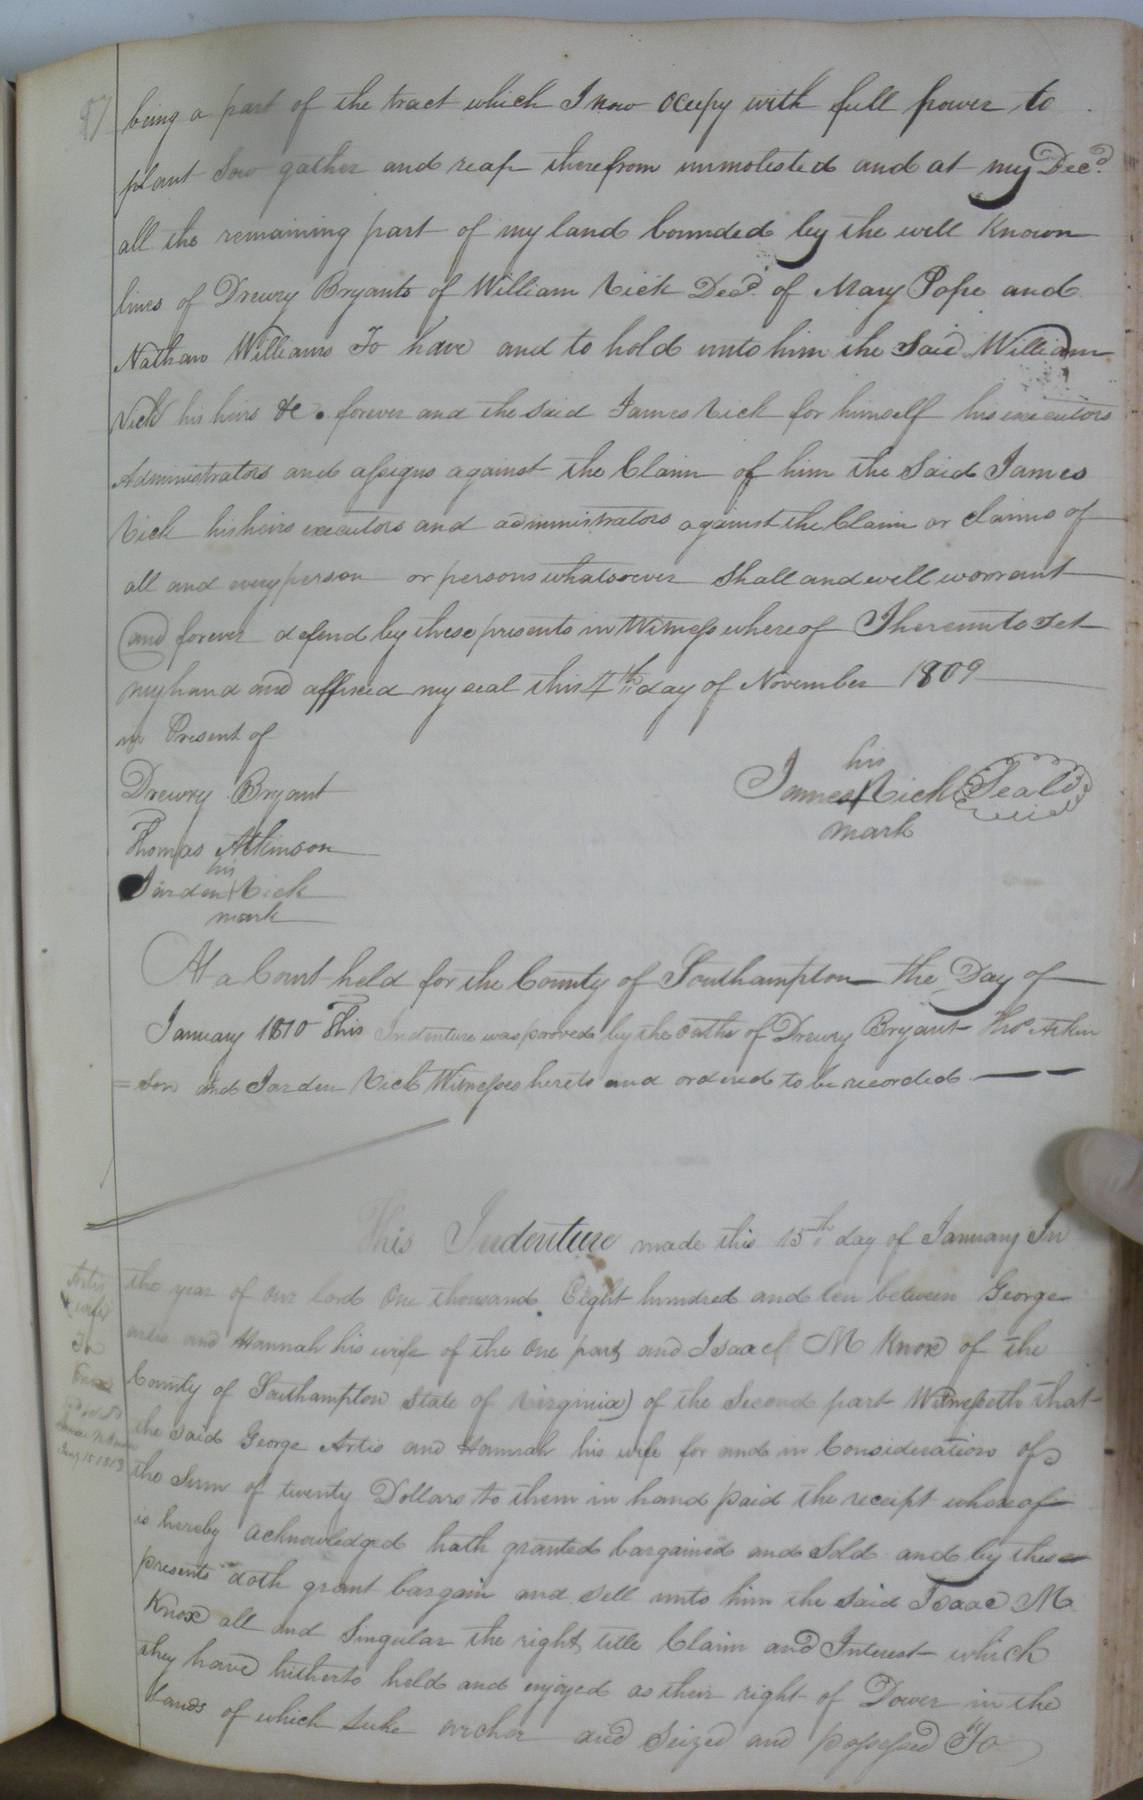 87
being a part of the tract which I now occupy with full power to
plant Sow gather and reap therefrom unmolested and at my Decd.
all the remaining part of my land bounded by the well Known
lines of Drewry Bryants of William Vick Decd. of Mary Pope and
Nathan Williams To have and to hold unto him the Said William
Vick his heirs &c. forever and the said James Vick for himself his executors
Administrators and assigns against the Claim of him the Said James
Vick his heirs executors and administrators against the Claim or claims of
all and every person or persons whatsoever Shall and will warrant
and forever defend by these presents in Witness whereof I hereunto Set
my hand and affixed my seal this 4th day of November 1809
in Present of
Drewry Bryant
his
James Vick Seal
mark
Thomas Atkinson
his
Jarden Vick
mark
At a Court held for the County of Southampton the Day of
January 1810 This Indenture was proved by the oaths of Drewry Bryant Thos Atkin
=son and Jarden Vick Witnesses hereto and ordered to be recorded
This Indenture made this 15th day of January In
the year of our lord One thousand Eight hundred and ten between George
Artis and Hannah his wife of the One part and Isaac M Knox of the
County of Southampton State of Virginia) of the Second part Witnesseth that
the said George Artis and Hannah his wife for and in Consideration of
the Sum of twenty Dollars to them in hand paid the receipt whereof
is hereby acknowledged hath granted bargained and Sold and by these
presents doth grant bargain and sell unto him the said Isaac M
Knox all and Singular the right title Claim and Interest which
they have hitherto held and enjoyed as their right of Dower in the
Lands of which Luke archer and Seized and possessed To
Artis
& wife
To
Knox